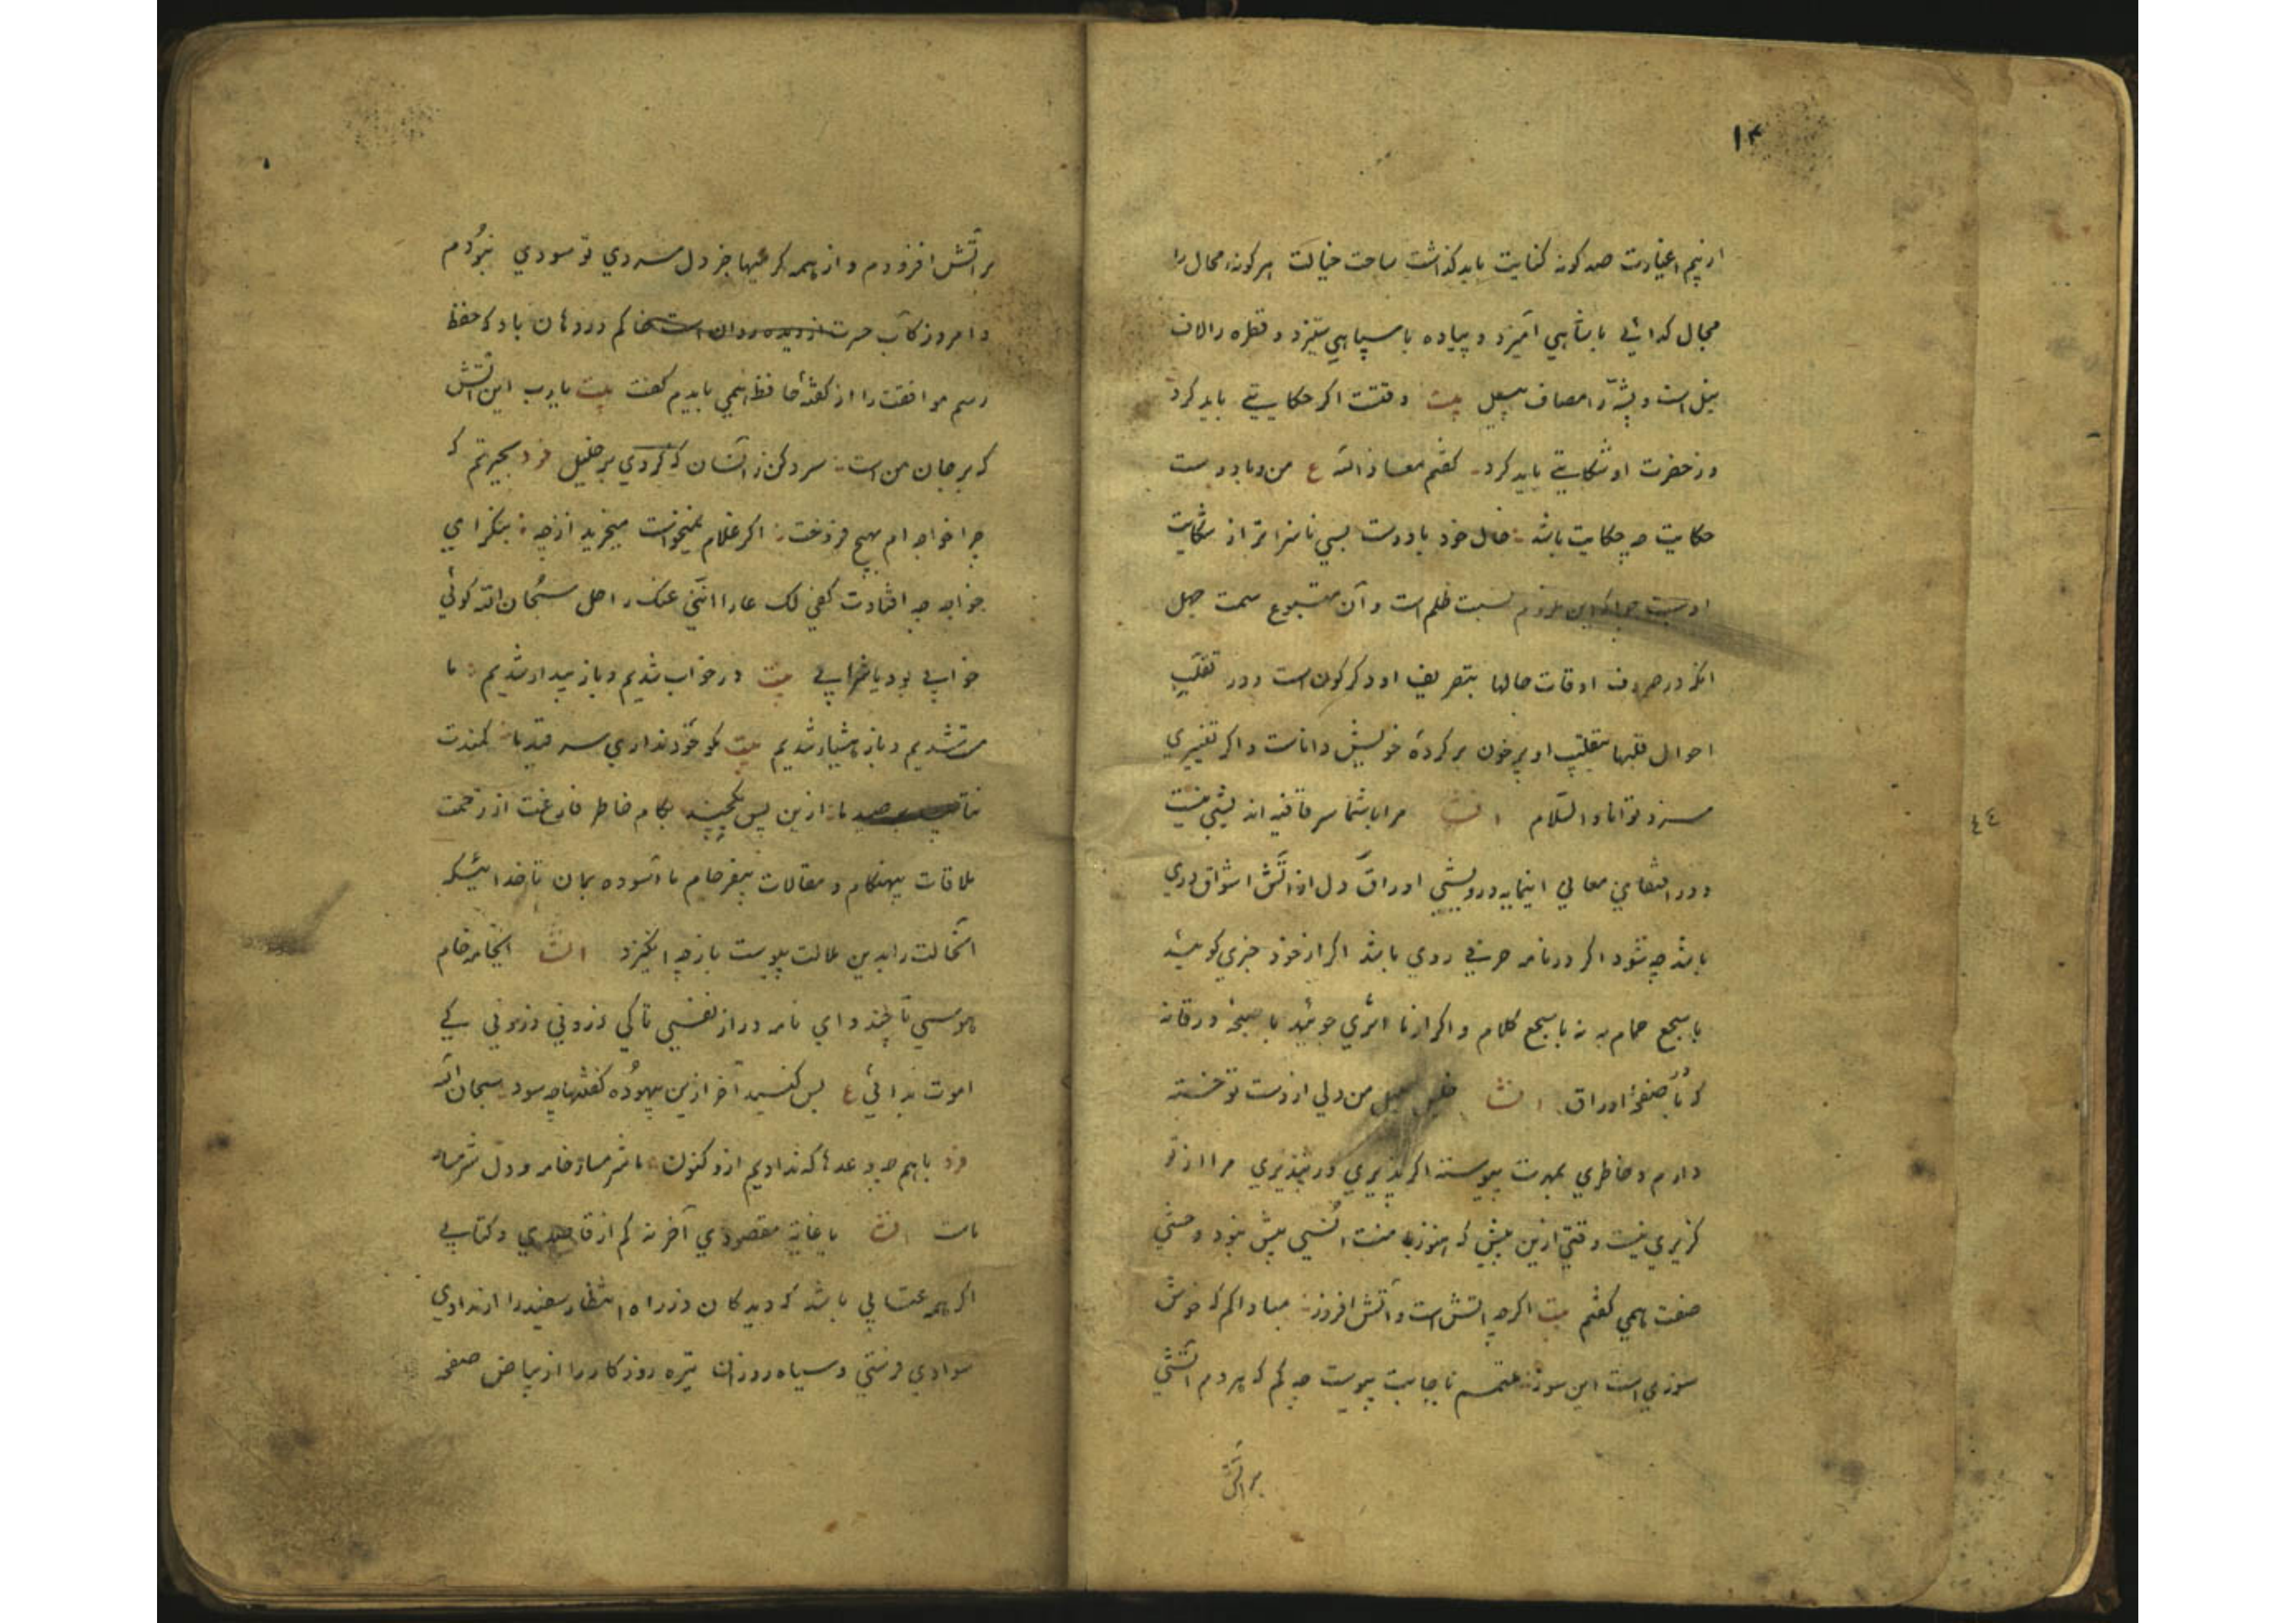 ۱۴
ازینم اعتبارت صد کونه کنایت باید کذاشت ساحت خیالت هر کونه محال را
مجال کدائی با شاهی آمیزد و پیاده با سپاهی ستیزد و قطره را لاف
نیل است و پشه را مصاف پیل بیت وقتت اکر حکایتی باید کرد
در حضرت او شکایتی باید کرد کفتم معاذ الله ع من و با دوست
حکایت چه حکایت باشد حال خود با دوست بسی ناسزاتر از شکایت
اوست نسبت ظلم است و آن مستتبع سمت جهل
انکه در صروف اوقات حالها بتصریف او دکرکون است و در تقلب
احوال قلبها بتقلیب او پر خون بر کردهٔ خویش داناست و اکر تغییری
سزد توانا والسلام انشا مرا با شما سر قافیه اندیشی نیست
و در معانی اینمایه درویشی اوراق دل از آتش اشواق دری
باشد چه شود اکر در نامه حرفی روی باشد اکر از خود خبری کوئید
با سجع حمام به نه با سجع کلام و اکر از ما اثری جوئید با ورقا نه
که با صفحهٔ اوراق انشا من دلی از دست تو خسته
دارم و خاطری بمهرت پیوسته اکر پذیری ور نپذیری مرا از تو
کزیری نیست وقتی ازین پیش که هنوز با منت انسی بیش نبود وحشی
صفت همی کفتم بیت اکرچه آتش است و آتش افروز مبادا کم که خوش
سوزی است این سوز عتمم تا بجانبت پیوست چه کم که هر دم آتشی
بر آتش
بر آتش افزودم و از همه کرمیها جز دل سردی تو سودی نبودم
و امروز کآب حسرت از دیده روان است خاکم در دهان باد که حفظ
رسم موافقت را از کفتهٔ حافظ همی بایدم کفت بیت یارب این آتش
که بر جان من است سرد کن زانسان که کردی بر خلیل فرد بحیرتم که
چرا خواجه ام بهیچ فروخت اکر غلام نمیخواست میخرید از چه بنکر ای
خواجه چه افتادت کفی لک عارا اننی عنک راحل سبحان الله کوئی
خوابی بود یا شرابی بیت در خواب شدیم و باز بیدار شدیم ما
مست شدیم و باز هشیار شدیم بیت تو خود نداری سر قید ما کمندت
ما ازین پس بکام خاطر فارغت از زحمت
ملاقات بیهنکام و مقالات بیفرجام ما آسوده بمان تا خدا نیشکه
آنحالت را بدین ملالت پیوست باز چه انکیزد انشا ایخامه خام
هوسی تا چند و ای نامه دراز نفسی تا کی فزونی و زبونی کی
اموت ندائی ع بس کنید آخر ازین بیهوده کفتنها چه سود سبحان الله
فرد با هم چه وعدها که ندادیم ازو کنون ما شرمساز خامه و دل شرمسار
ماست انشا یا غایة مقصودی آخر نه کم از قاصدی و کتابی
اکر همه عتابی باشد که دیدکان در راه انتظار سفید را از مدادی
سوادی فرستی و سیاه روزان تیره روزکار را از بیاض صفحه
٤٤